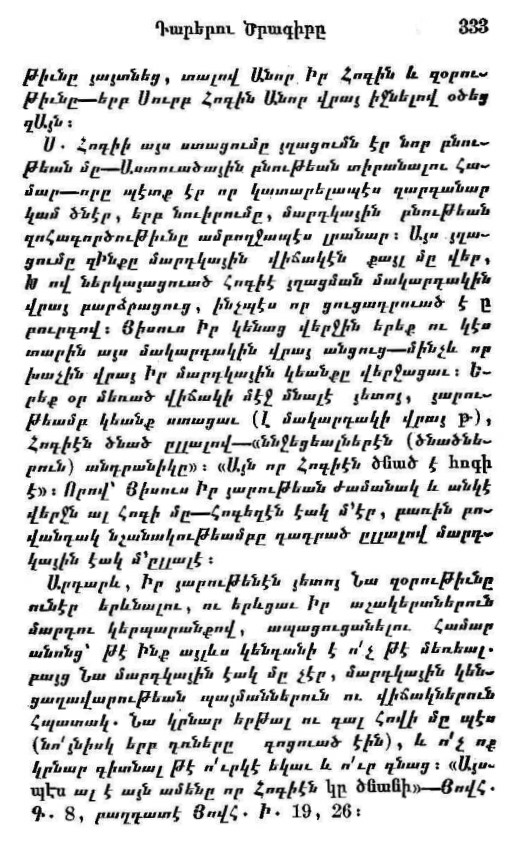 Դարերու Ծրագիրը 333
թիւնը յայտնեց, տալով Անոր Իր Հոգին և զօրու-
թիւնը—երբ Սուրբ Հոգին Անոր վրայ իջնելով օծեց
զԱյն։
Ս. Հոգիի այս ստացումը յղացումն էր նոր բնու-
թեան մը—Աստուածային բնութեան տիրանալու Հա-
մար—որը պէտք էր որ կատարելապէս զարգանար
կամ ծնէր, երբ նուիրումը, մարդկային բնութեան
զոհագործութիւնը ամբողջապէս լրանար։ Այս յղա-
ցումը զԻնքը մարդկային վիճակէն քայլ մը վեր,
Խ ով ներկայացուած Հոգիէ յղացման մակարդակին
վրայ բարձրացուց, ինչպէս որ ցուցադրուած է Ը
բուրգով։ Յիսուս Իր կենաց վերջին երեք ու կէս
տարին այս մակարդակին վրայ անցուց—մինչև որ
խաչին վրայ Իր մարդկային կեանքը վերջացաւ։ Ե-
րեք օր մեռած վիճակի մէջ մնալէ յետոյ, յարու-
թեամբ կեանք ստացաւ (Լ մակարդակի վրայ Բ),
Հոգիէն ծնած ըլլալով—«ննջեցեալներէն (ծնածնե-
րուն) անդրանիկը»։ «Այն որ Հոգիէն ծնած է հոգի
է»։ Որով՝ Յիսուս Իր յարութեան ժամանակ և անկէ
վերջն ալ Հոգի մը—Հոգեղէն էակ մ՚էր, բառին բո-
վանդակ նշանակութեամբը դադրած ըլլալով մարդ-
կային էակ մ՚ըլլալէ։
Արդարև, Իր յարութենէն յետոյ Նա զօրութիւնը
ունէր երևնալու, ու երևցաւ Իր աշակերտներուն
մարդու կերպարանքով, ապացուցանելու Համար
անոնց՝ թէ Ինք այլևս կենդանի է ո՛չ թէ մեռեալ.
բայց Նա մարդկային էակ մը չէր, մարդկային կեն-
ցաղավարութեան պայմաններուն ու վիճակներուն
Հպատակ. Նա կրնար երթալ ու գալ Հովի մը պէս
(նո՛յնիսկ երբ դռները գոցուած էին), և ո՛չ ոք
կրնար գիտնալ թէ ո՛ւրկէ եկաւ և ո՛ւր գնաց։ «Այս-
պէս ալ է այն ամենը որ Հոգիէն կը ծնանի»—Յովհ.
Գ. 8, բաղդատէ Յովհ. Ի. 19, 26։